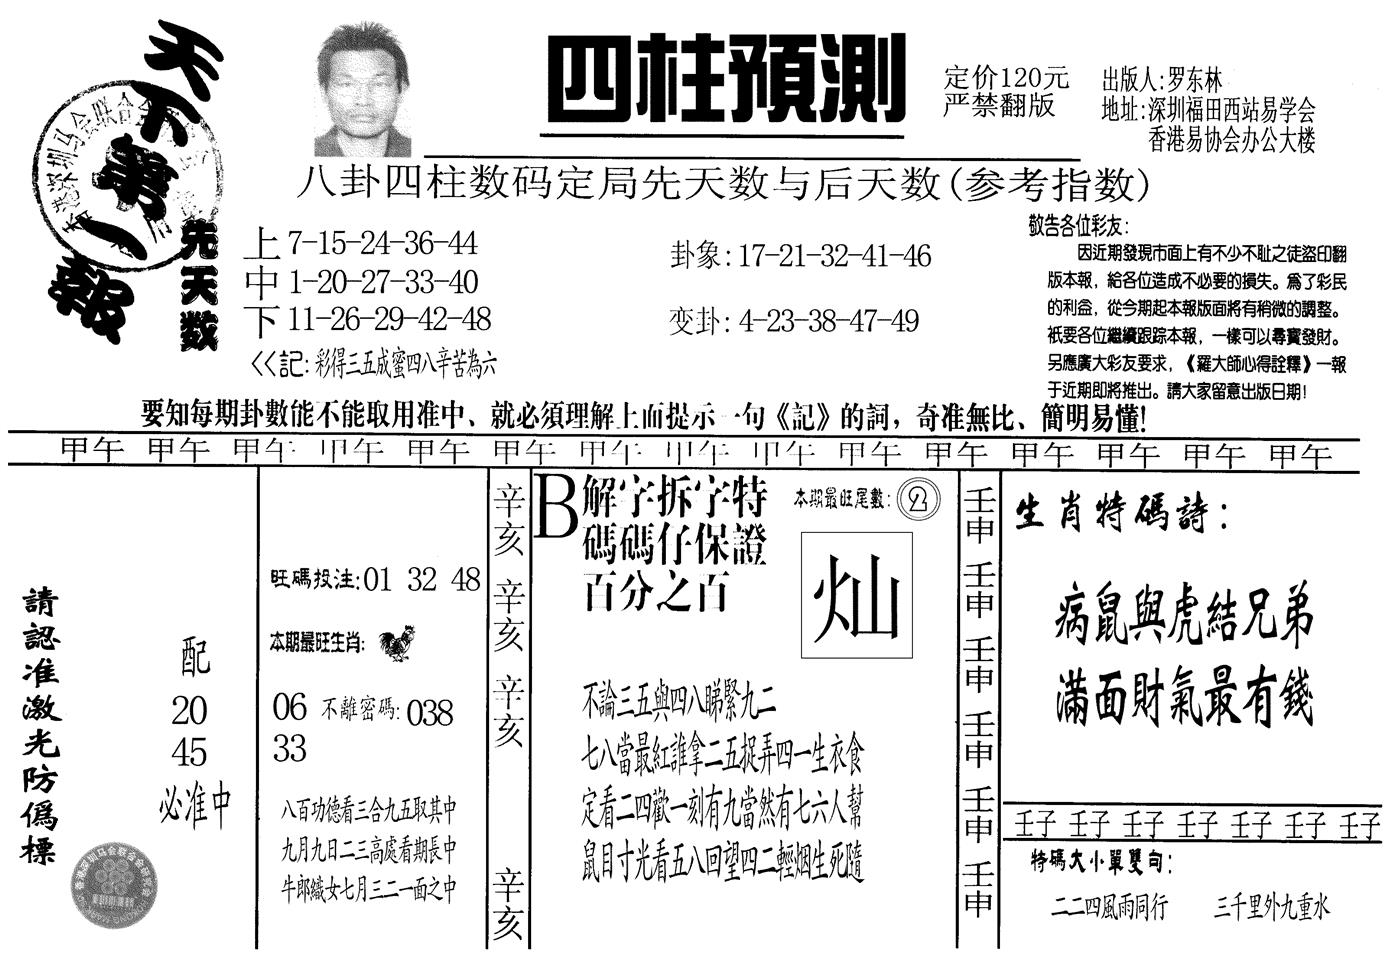 天下第一報
四柱預測
定价120元
严禁翻版
出版人:罗东林
地址:深圳福田西站易学会
香港易协会办公大楼
八卦四柱数码定局先天数与后天数(参考指数)
先天数
上 7-15-24-36-44
中 1-20-27-33-40
下 11-26-29-42-48
<<記: 彩得三五成蜜四八辛苦為六
卦象: 17-21-32-41-46
变卦: 4-23-38-47-49
敬告各位彩友:
因近期發現市面上有不少不耻之徒盜印翻
版本報，給各位造成不必要的損失。為了彩民
的利益，從今期起本報版面將有稍微的調整。
衹要各位繼續跟踪本報，一樣可以尋寶發財。
另應廣大彩友要求，《羅大師心得詮釋》一報
于近期即將推出。請大家留意出版日期!
要知每期卦數能不能取用准中、就必須理解上面提示一句《記》的詞，奇准無比、簡明易懂!
甲午 甲午 甲午 甲午 甲午 甲午 甲午 甲午 甲午 甲午 甲午 甲午 甲午 甲午 甲午
請認准激光防偽標
配
20
45
必准中
旺碼投注:01 32 48
本期最旺生肖:
06 不離密碼: 038
33
八百功德看三合九五取其中
九月九日二三高處看期長中
牛郎織女七月三二一面之中
辛亥 辛亥 辛亥 辛亥
B
解字拆字特
碼碼仔保證
百分之百
本期最旺尾數: 2
灿
不論三五與四八睇緊九二
七八當最紅誰拿二五捉弄四一生衣食
定看二四歡一刻有九當然有七六人幫
鼠目寸光看五八回望四二輕烟生死隨
壬申 壬申 壬申 壬申 壬申 壬申
生肖特碼詩:
病鼠與虎結兄弟
滿面財氣最有錢
壬子 壬子 壬子 壬子 壬子 壬子 壬子
特碼大小單雙句:
二二四風雨同行 三千里外九重水